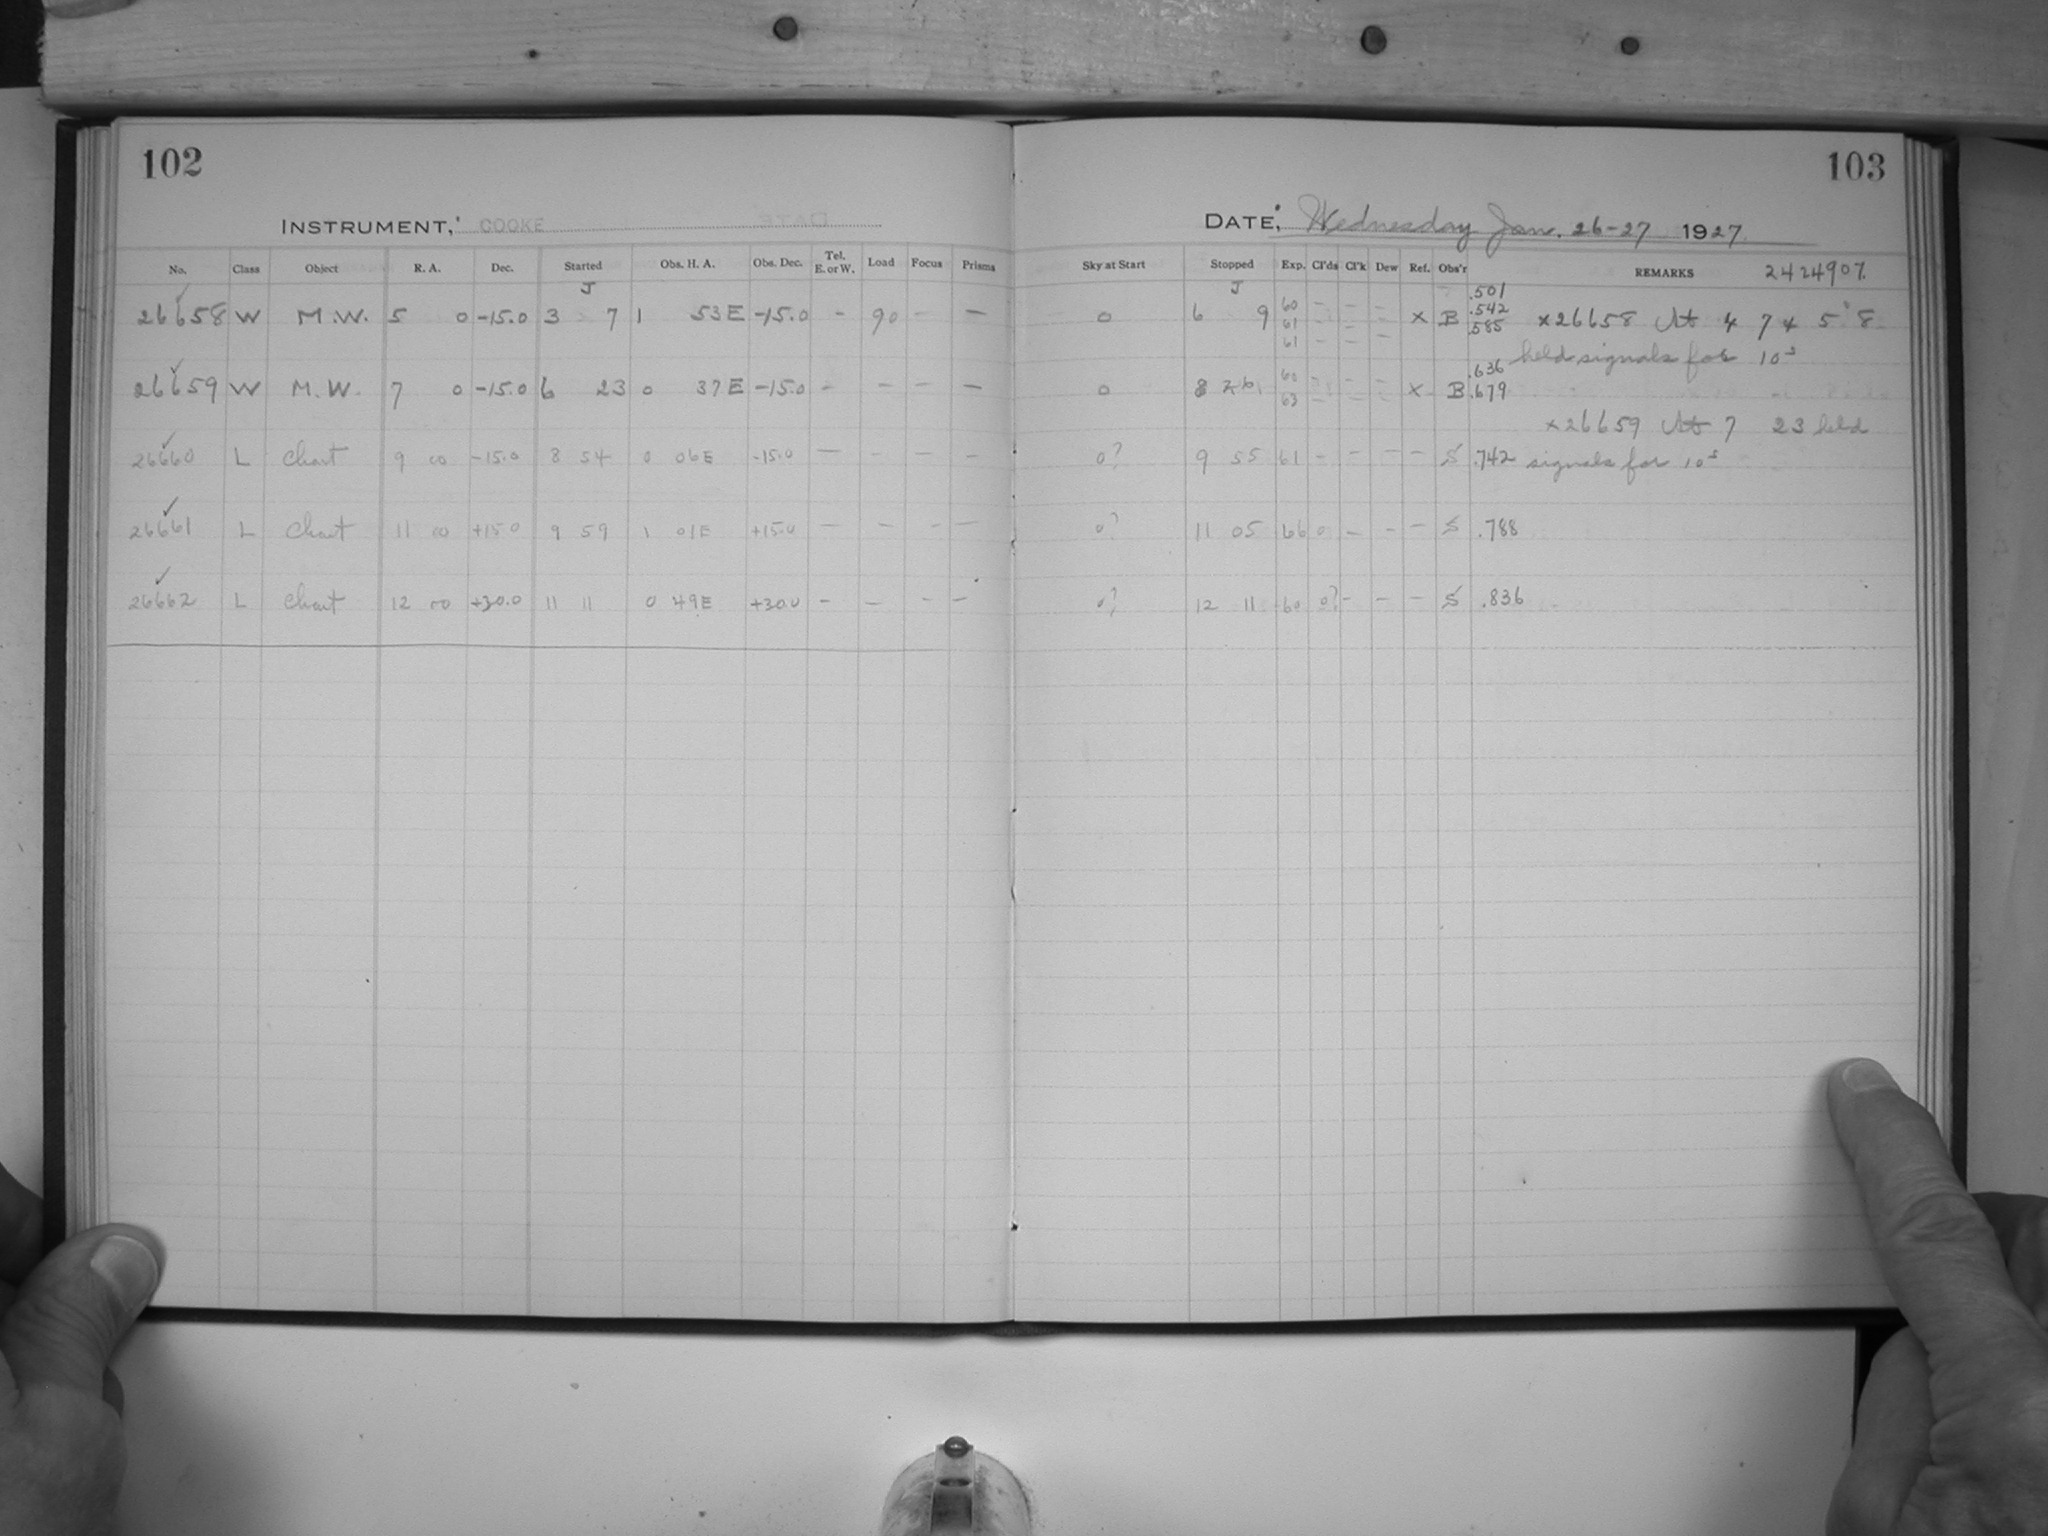 102
INSTRUMENT, COOKE
No. Class Object R. A. Dec. Started Obs. H. A. Obs. Dec. Tel. E. or W. Load Focus Prisms
J
26658 W M.W. 5 0 -15.0 3 7 1 53 E -15.0 - 90 - -
26659 W M.W. 7 0 -15.0 6 23 0 37 E -15.0 - - - -
26660 L Chart 9 00 -15.0 8 54 0 06E -15.0 - - - -
26661 L Chart 11 00 +15.0 9 59 1 01E +15.0 - - - -
26662 L Chart 12 00 +30.0 11 11 0 49E +30.0 - - - -
103
DATE, Wednesday Jan. 26-27 1927
Sky at Start Stopped Exp. Cl'ds Cl'k Dew Ref. Obs'r REMARKS 2424907.
J
60 - - - .501
0 6 9 61 - - - x B .542 x26658 At 4 7 & 5 8
61 - - - .585
held signals for 10s
60 - - - .636
0 8 26 63 - - - x B .679
x26659 At 7 23 held
0? 9 55 61 - - - - S .742 signals for 10s
0? 11 05 66 0 - - - S .788
0? 12 11 60 0? - - - S .836